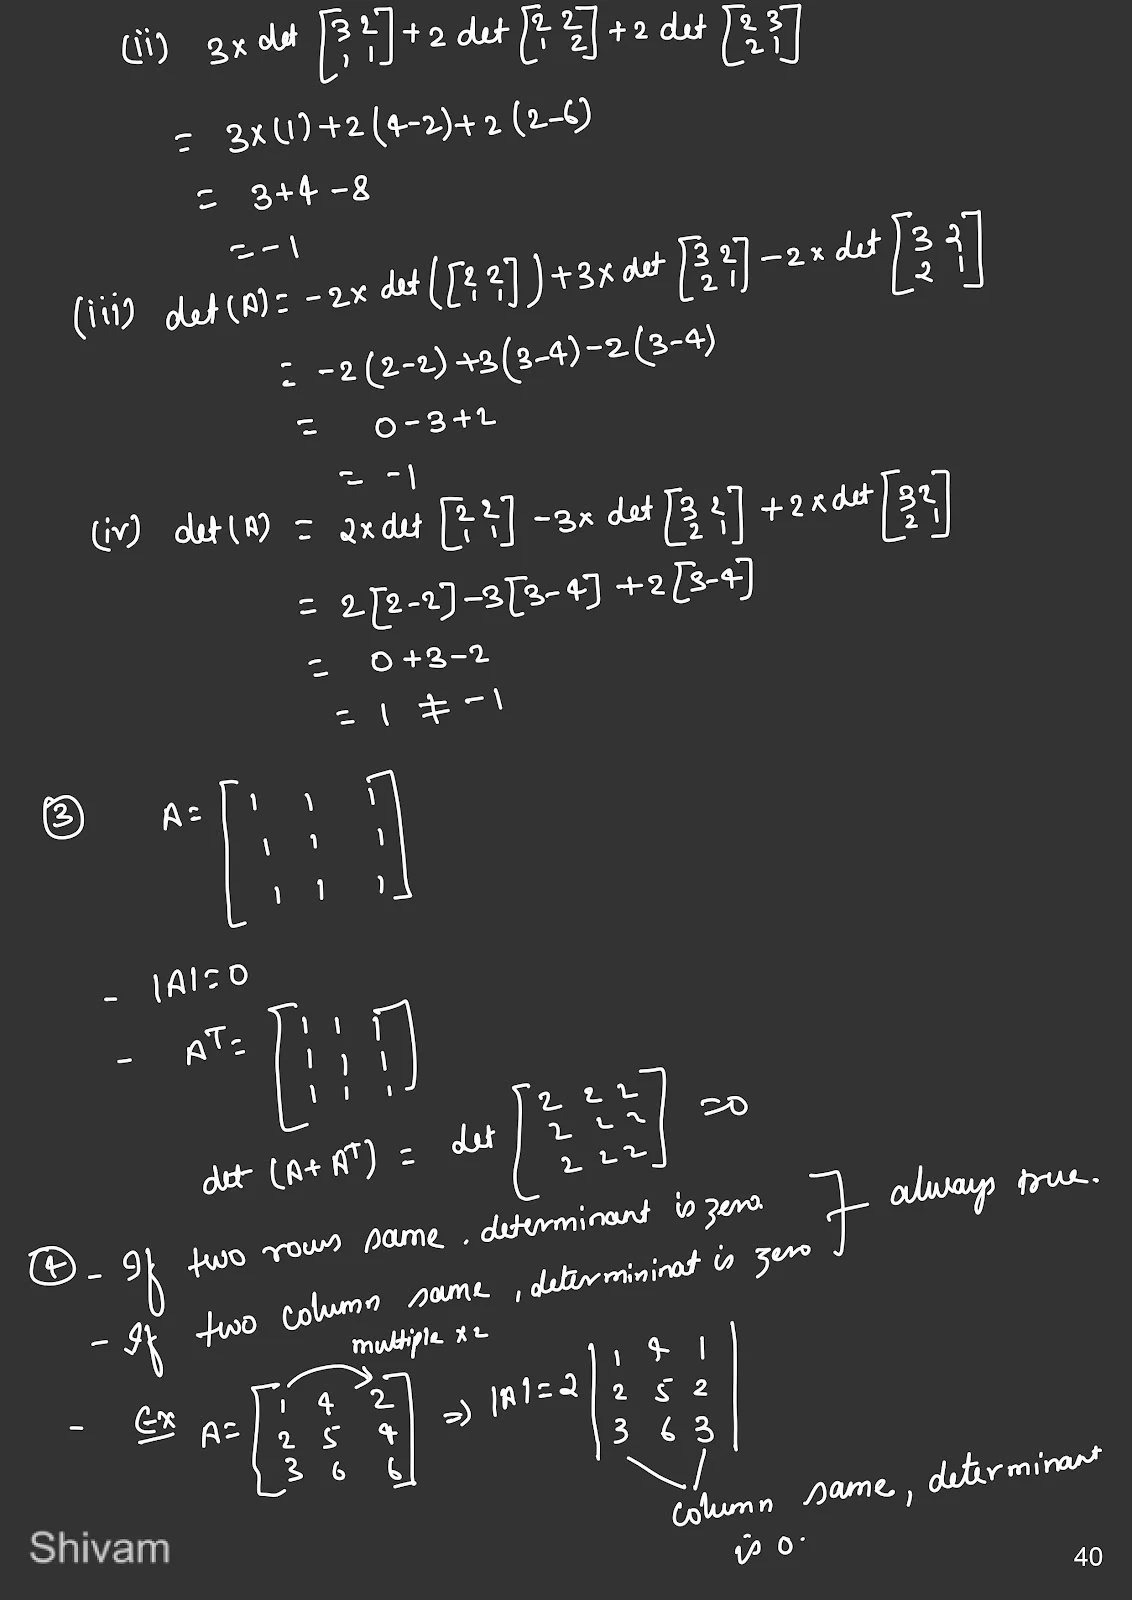 (ii) 3x det [3 2; 1 1] + 2 det [2 2; 1 2] + 2 det [2 3; 2 1]
= 3x(1)+2(4-2)+2(2-6)
= 3+4-8
= -1
(iii) det(A) = -2x det([2 2; 1 1]) + 3x det [3 2; 2 1] - 2x det [3 2; 2 1]
= -2(2-2)+3(3-4)-2(3-4)
= 0-3+2
= -1
(iv) det(A) = 2x det [2 2; 1 1] - 3x det [3 2; 2 1] + 2x det [3 2; 2 1]
= 2[2-2]-3[3-4]+2[3-4]
= 0+3-2
= 1 ≠ -1
③ A = [1 1 1
1 1 1
1 1 1]
- |A|=0
- Aᵀ = [1 1 1
1 1 1
1 1 1]
det (A+Aᵀ) = det [2 2 2; 2 2 2; 2 2 2] =0
④ - If two rows same. determinant is zero. } always true.
- If two column same, determininat is zero
multiple x2
- Ex A = [1 4 2; 2 5 4; 3 6 6] ⇒ |A| = 2 |1 4 1; 2 5 2; 3 6 3|
column same, determinant
is 0.
Shivam
40